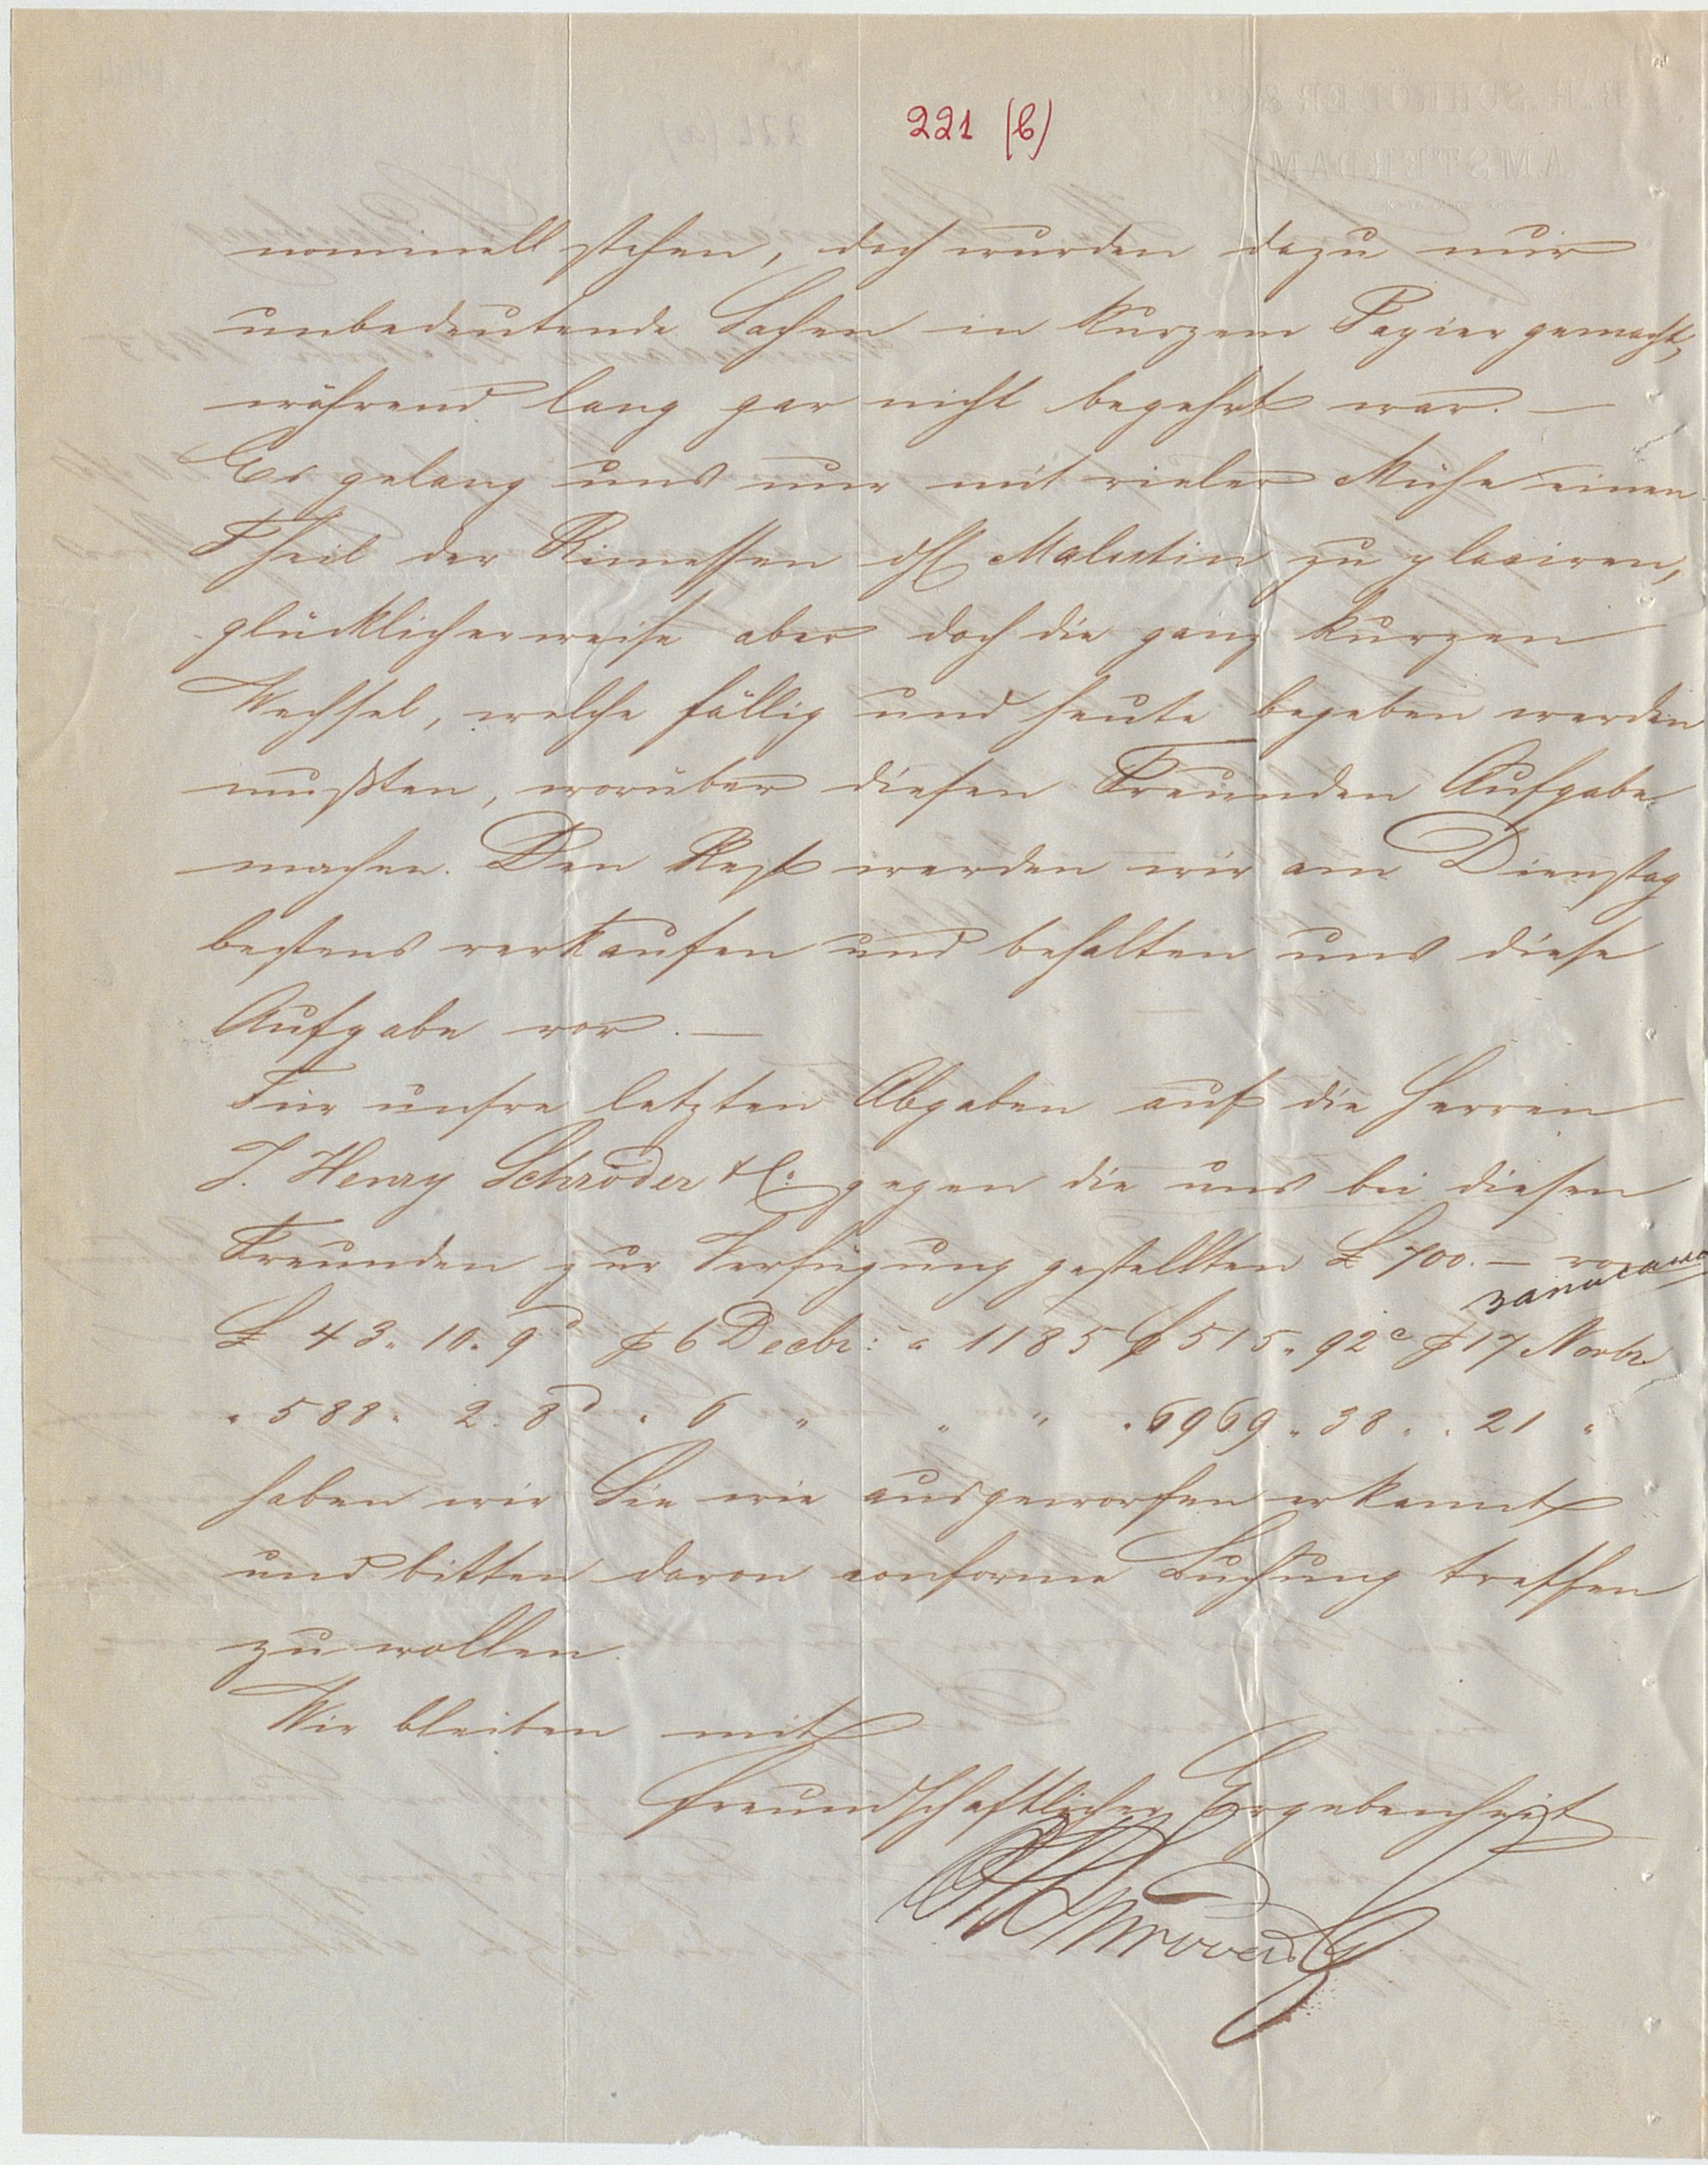 221 (b)
nominell stehen, doch wurden dazu nur
unbedeutende Sachen in kurzem Papier gemacht,
während lang gar nicht begehrt war. —
Es gelang uns nur mit vieler Mühe einen
Theil der Rimessen dH Malutin zu placiren,
glücklicherweise aber doch die ganz kurzen
Wechsel, welche fällig und heute begeben werden
mußten, worüber diesen Freunden Aufgabe
machen. Den Rest werden wir am Dienstag
bestens verkaufen und behalten uns diese
Aufgabe vor. —
Für unsre letzten Abgaben auf die Herren
J. Henry Schröder & Co. gegen die uns bei diesen
Freunden zur Verfügung gestellten £ 700. —
записано
£ 43. 10. 9d p 6 Decbr: a 1185 f 515. 92c p 17 Novbr
" 588. 2. 8d " 6 " " " " 6969. 38. " 21 "
haben wir Sie wie ausgeworfen erkannt
und bitten davon conforme Buchung treffen
zu wollen.
Wir bleiben mit
freundschaftlicher Ergebenheit
Schröder